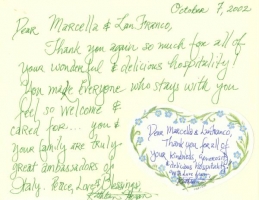 October 7, 2002
Dear Marcella & Lanfranco,
Thank you again so much for all of
your wonderful & delicious hospitality!
You make everyone who stays with you
feel so welcome &
cared for... you &
your family are truly
great ambassadors of
Italy. Peace, Love & Blessings
Dear Marcella & Lanfranco,
Thank you for all of
your kindness, generosity
& delicious hospitality